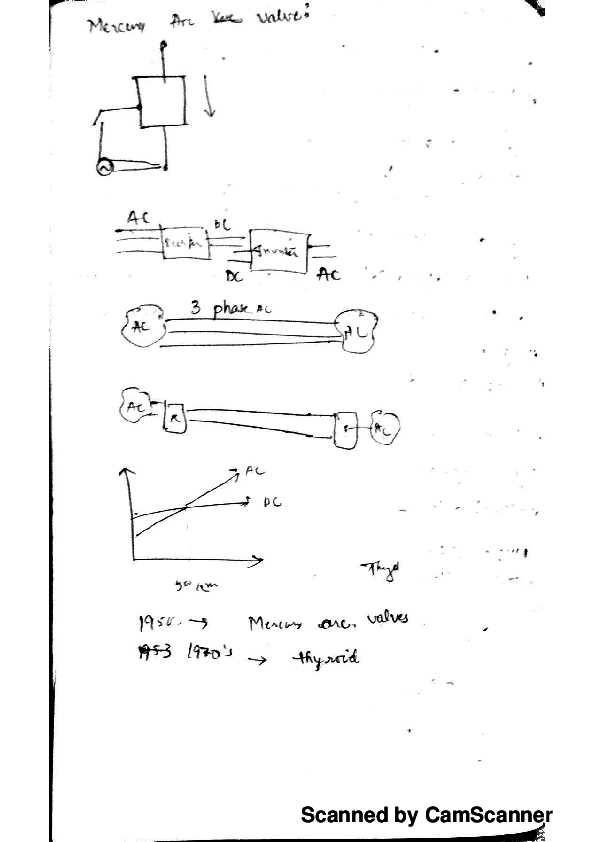 Mercury Arc valve:
AC
DC
Rectifier
Inverter
DC
AC
3 phase AC
AC
AC
AC
R
AC
AC
DC
500 km
Thyd
1950 → Mercury arc valves
1953 1970's → thyroid
Scanned by CamScanner